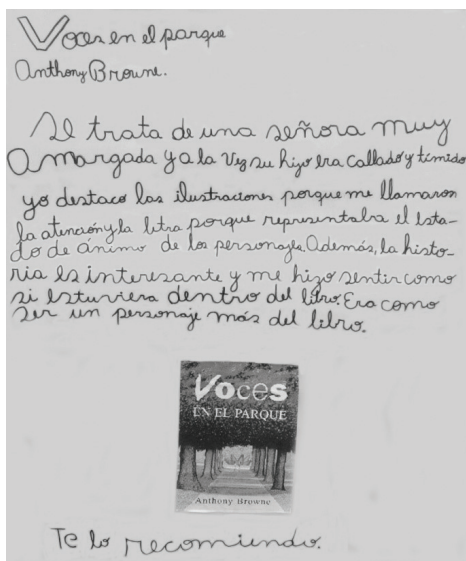 Voces en el parque
Anthony Browne.
Se trata de una señora muy
amargada y a la vez su hijo era callado y tímido
yo destaco las ilustraciones porque me llamaron
la atención y la letra porque representaba el esta-
do de ánimo de los personajes. Además, la histo-
ria es interesante y me hizo sentir como
si estuviera dentro del libro. Era como
ser un personaje más del libro.
Voces
EN EL PARQUE
Anthony Browne
Te lo recomiendo.